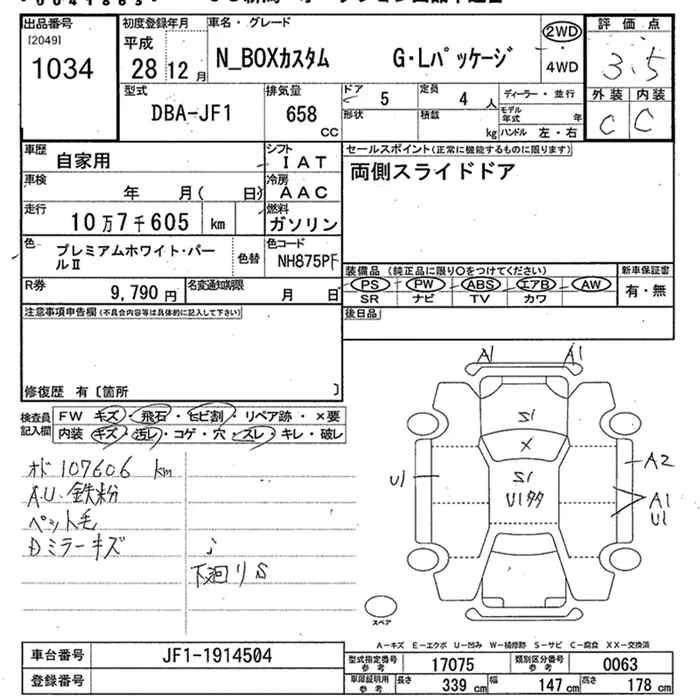 出品番号
[2049]
1034
初度登録年月
平成
28 12月
車名・グレード
N_BOXカスタム G・Lパッケージ
2WD
4WD
評価点
3.5
外装 内装
C C
型式
DBA-JF1
排気量
658 CC
ドア 5
定員 4人
形状
積載 kg
ディーラー・並行
モデル年式 年
ハンドル 左・右
車歴
自家用
シフト
IAT
車検
年 月( 日)
冷房
AAC
走行
10万7千605 km
燃料
ガソリン
色
プレミアムホワイト・パールⅡ
色替
色コード
NH875PF
R券
9,790円
名変通知期限
月 日
セールスポイント(正常に機能するものに限ります)
両側スライドドア
装備品(純正品に限り○をつけてください)
PS PW ABS エアB AW
SR ナビ TV カワ
新車保証書
有・無
後日品
注意事項申告欄(不具合内容等は具体的に記入して下さい)
修復歴 有〔箇所 〕
検査員記入欄
FW キズ・飛石・ヒビ割・リペア跡・×要
内装 キズ・汚レ・コゲ・穴・スレ・キレ・破レ
オド107606 km
A.U.鉄粉
ペット毛
Dミラーキズ
下廻りS
A1 A1
S1
X
S1
U1多
U1
A2
A1
U1
スペア
A-キズ E-エクボ U-凹み W-補修跡 S-サビ C-腐食 XX-交換済
車台番号
JF1-1914504
登録番号
型式指定番号 参考
17075
類別区分番号 参考
0063
車庫証明用 参考
長さ 339 cm
幅 147 cm
高さ 178 cm